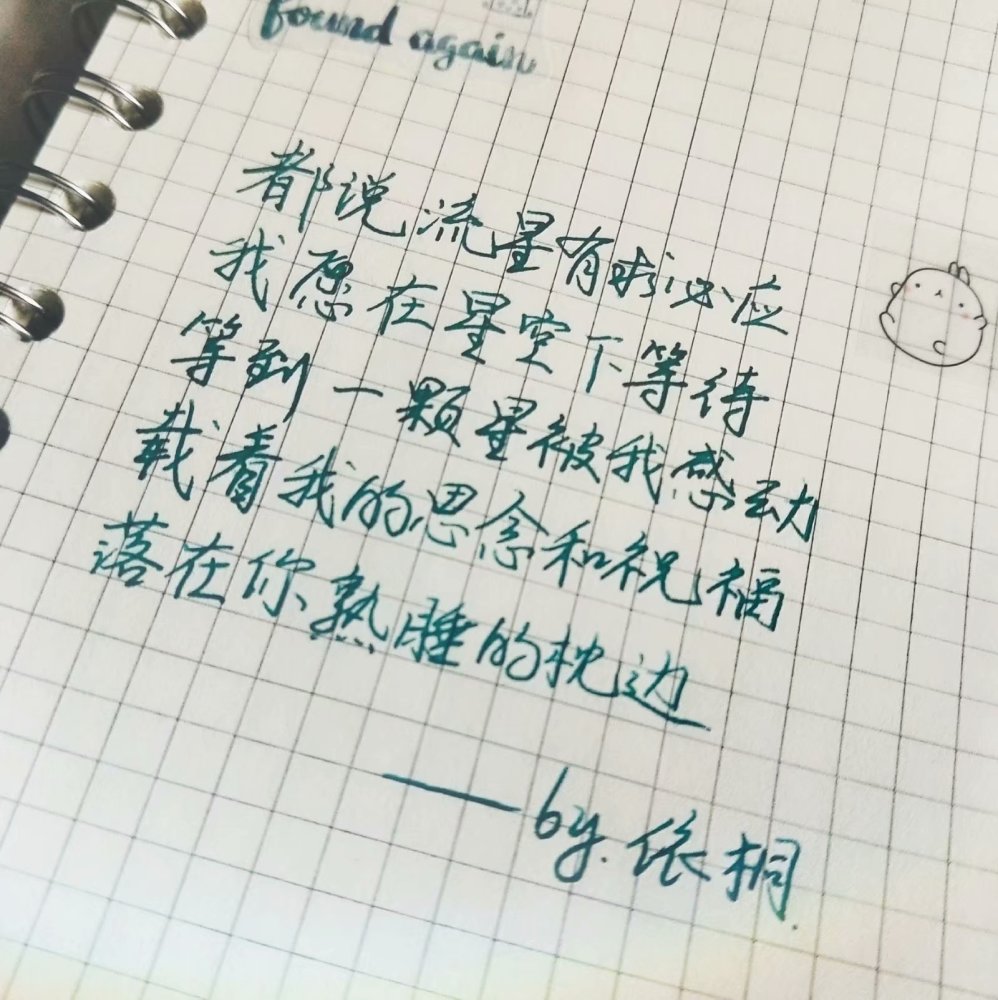 found again
都说流星有求必应
我愿在星空下等待
等到一颗星被我感动
载着我的思念和祝福
落在你熟睡的枕边
——by.依桐.